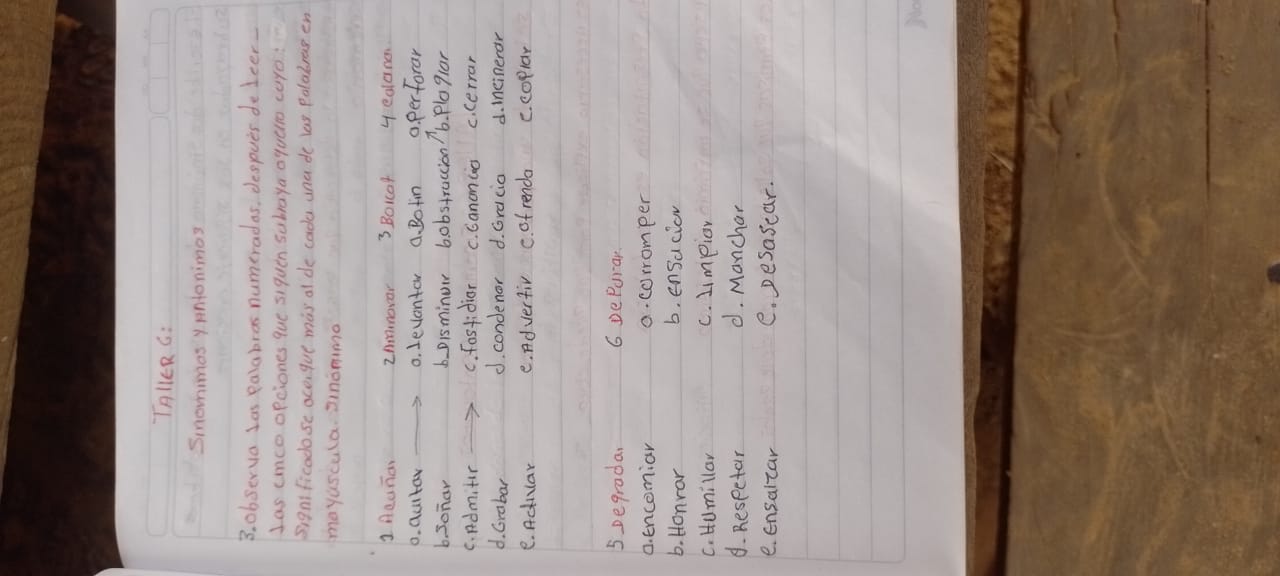 TALLER 6:
Sinonimos y Antonimos
3. observa las palabras numeradas, después de leer
las cinco opciones que siguen subraya aquella cuyo:
significado se acerque más al de cada una de las palabras en
mayúscula sinónimo
1 Acuñar 2 Aminorar 3 Boicot 4 calcinar
a. quitar a. levantar a. Botin a. perforar
b. Soñar b. Disminuir b. obstruccion b. Plagiar
c. Admitir c. fastidiar c. Ganancia c. cerrar
d. Grabar d. condenar d. Gracia d. Incinerar
e. Activar e. Advertir e. ofrenda e. copiar
5 Degradar 6 Depurar
a. Encomiar a. corromper
b. Honrar b. ensuciar
c. Humillar c. limpiar
d. Respetar d. Manchar
e. Ensalzar e. Desascar.